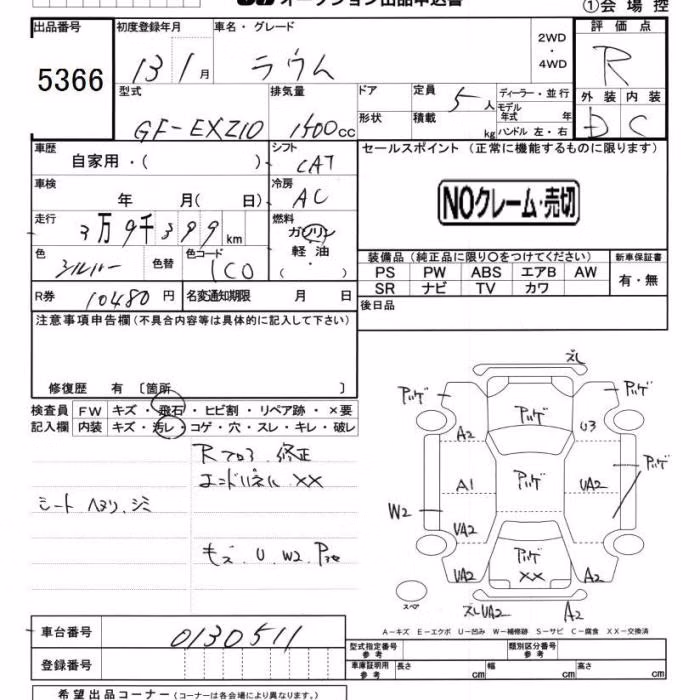 オークション出品申込書
①会場控
出品番号
5366
初度登録年月
13 1月
車名・グレード
ラウム
2WD
・
4WD
評価点
R
型式
GF-EXZ10
排気量
1500cc
ドア
形状
定員
5人
積載
kg
ディーラー・並行
モデル年式 年
ハンドル 左・右
外装 内装
D C
車歴
自家用・( )
シフト
CAT
セールスポイント (正常に機能するものに限ります)
車検
年 月( 日)
冷房
AC
NOクレーム・売切
走行
3万9千399km
燃料
ガソリン
軽油
( ・ )
色
シルバー
色替
色コード
1C0
装備品 (純正品に限り○をつけてください)
新車保証書
PS PW ABS エアB AW
SR ナビ TV カワ
有・無
R券
10480円
名変通知期限 月 日
後日品
注意事項申告欄 (不具合内容等は具体的に記入して下さい)
修復歴 有 〔箇所 〕
検査員 FW キズ・飛石・ヒビ割・リペア跡・×要
記入欄 内装 キズ・汚レ・コゲ・穴・スレ・キレ・破レ
Rフロア 修正
エンドパネル ××
シート ヘタリ、シミ
キズ U W2
ズレ
A2
U3
A1
UA2
W2
UA2
UA2
××
A2
スペア
ズレUA2
A2
A-キズ E-エクボ U-凹み W-補修跡 S-サビ C-腐食 XX-交換済
車台番号
0130511
登録番号
型式指定番号
参考
類別区分番号
参考
車庫証明用
参考
長さ cm
幅 cm
高さ cm
希望出品コーナー (コーナーは各会場により異なります。)